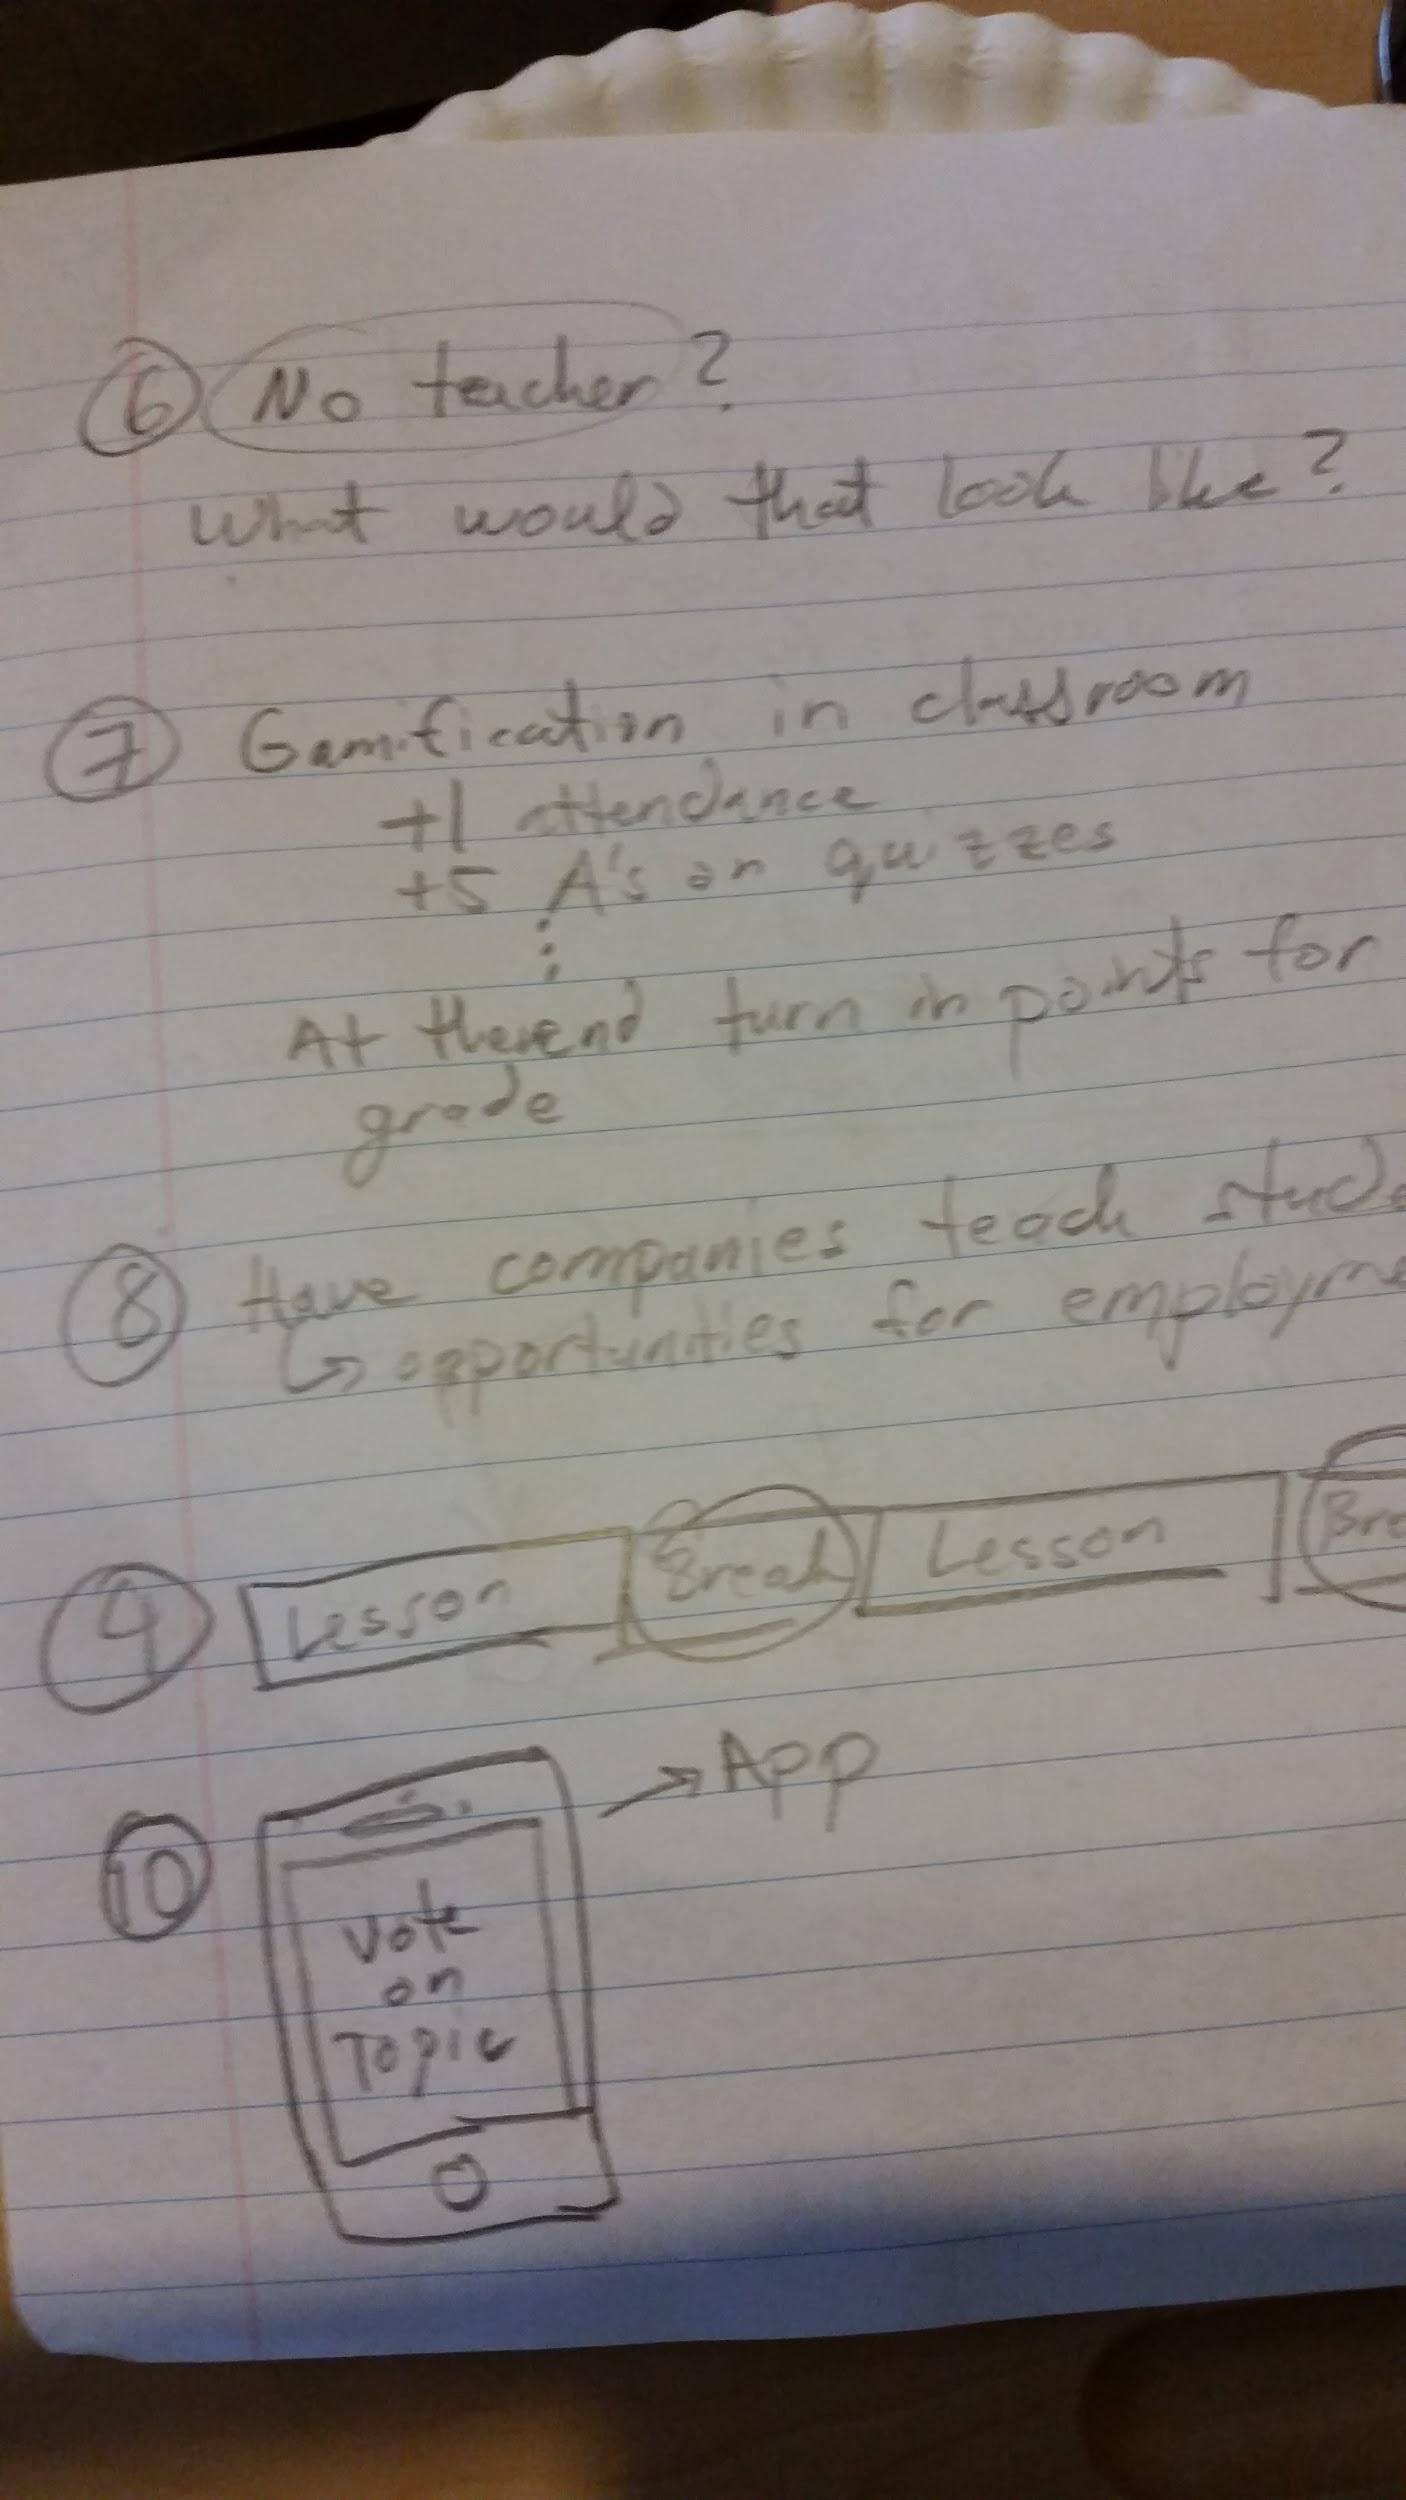 6 No teacher?
What would that look like?
7 Gamification in classroom
+1 attendance
+5 A's on quizzes
⋮
At the end turn in points for
grade
8 Have companies teach stude
↳ opportunities for employme
9 Lesson Break Lesson Bre
10 → App
Vote
on
Topic